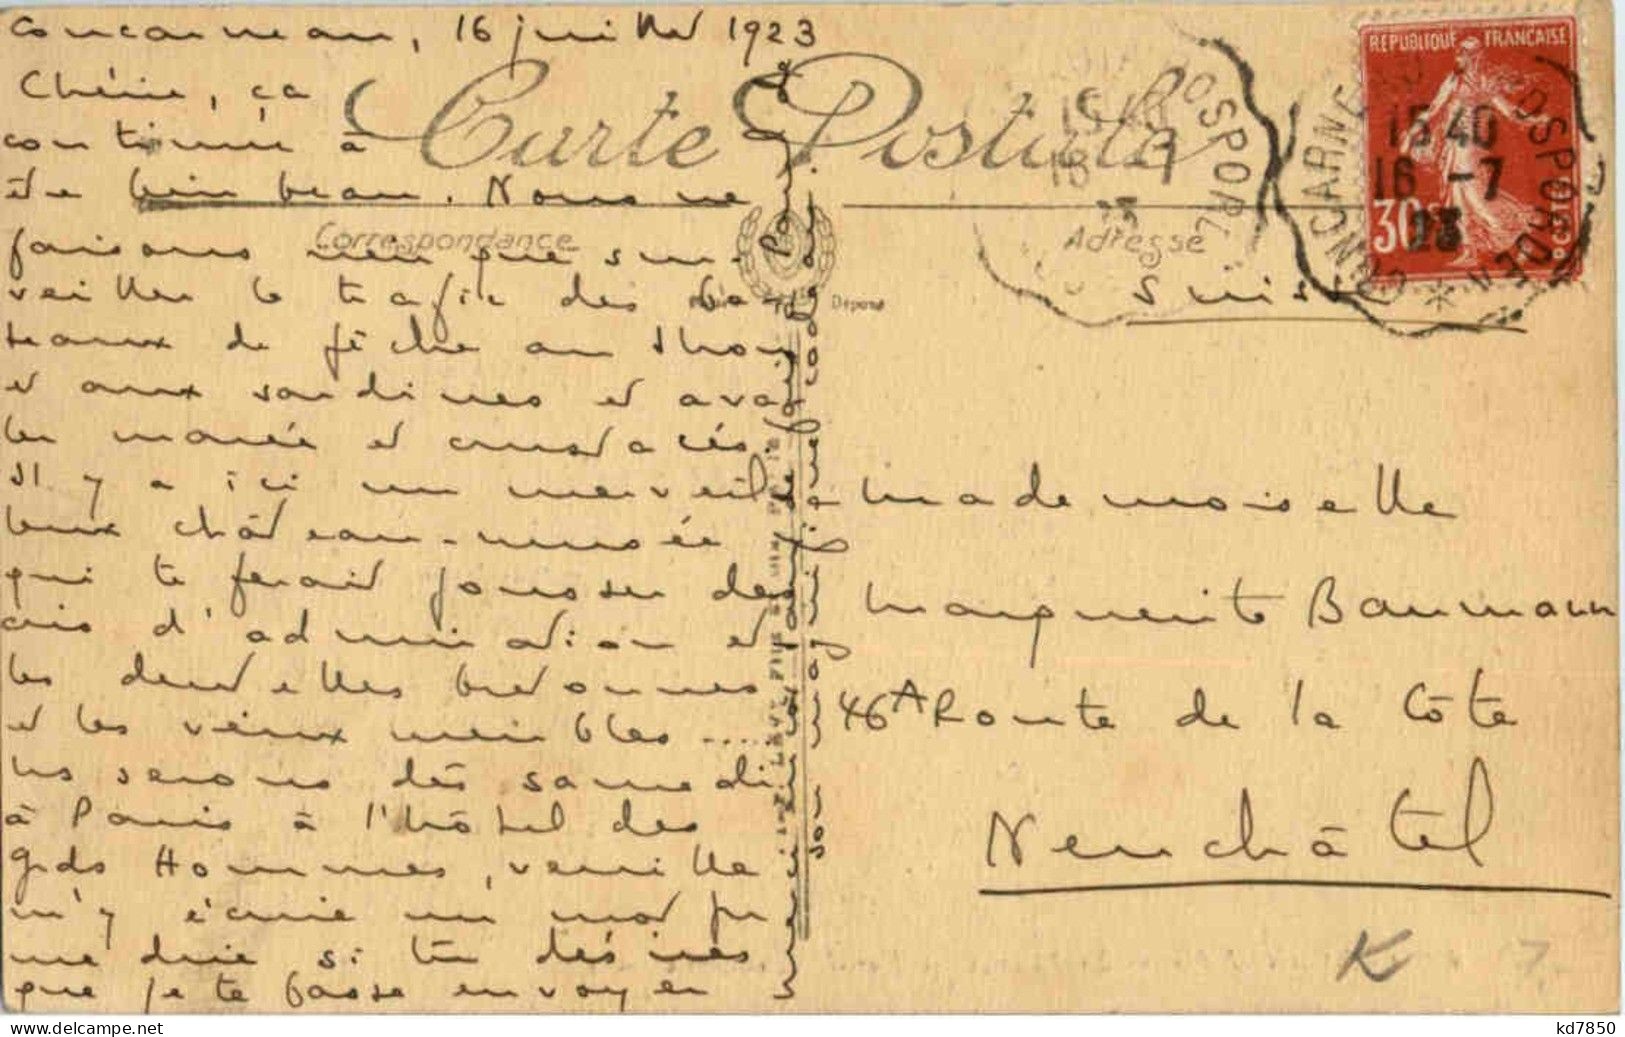 Concarneau, 16 juillet 1923
Chérie, ça
continue à
être bien beau. Nous ne
faisons rien que sur-
veiller le trafic des ba-
teaux de pêche au thon
et aux sardines et ava-
ler marée et crustacés.
Il y a ici un merveil-
leux château-musée
qui te ferait pousser des
cris d'admiration et
les dentelles bretonnes
et les vieux meubles ....
Ns serons dès samedi
à Paris à l'hôtel des
gds Hommes, veuille
m'y écrire un mot pr
me dire si tu désires
que je te fasse envoyer
Carte Postale
Correspondance
Adresse
Déposé
REPUBLIQUE FRANÇAISE
30c
POSTES
CONCARNEAU A ROSPORDEN
15 40
16 -7
23
Suisse
Mademoiselle
Marguerite Baumann
46A Route de la Côte
Neuchâtel
K
7
kd7850